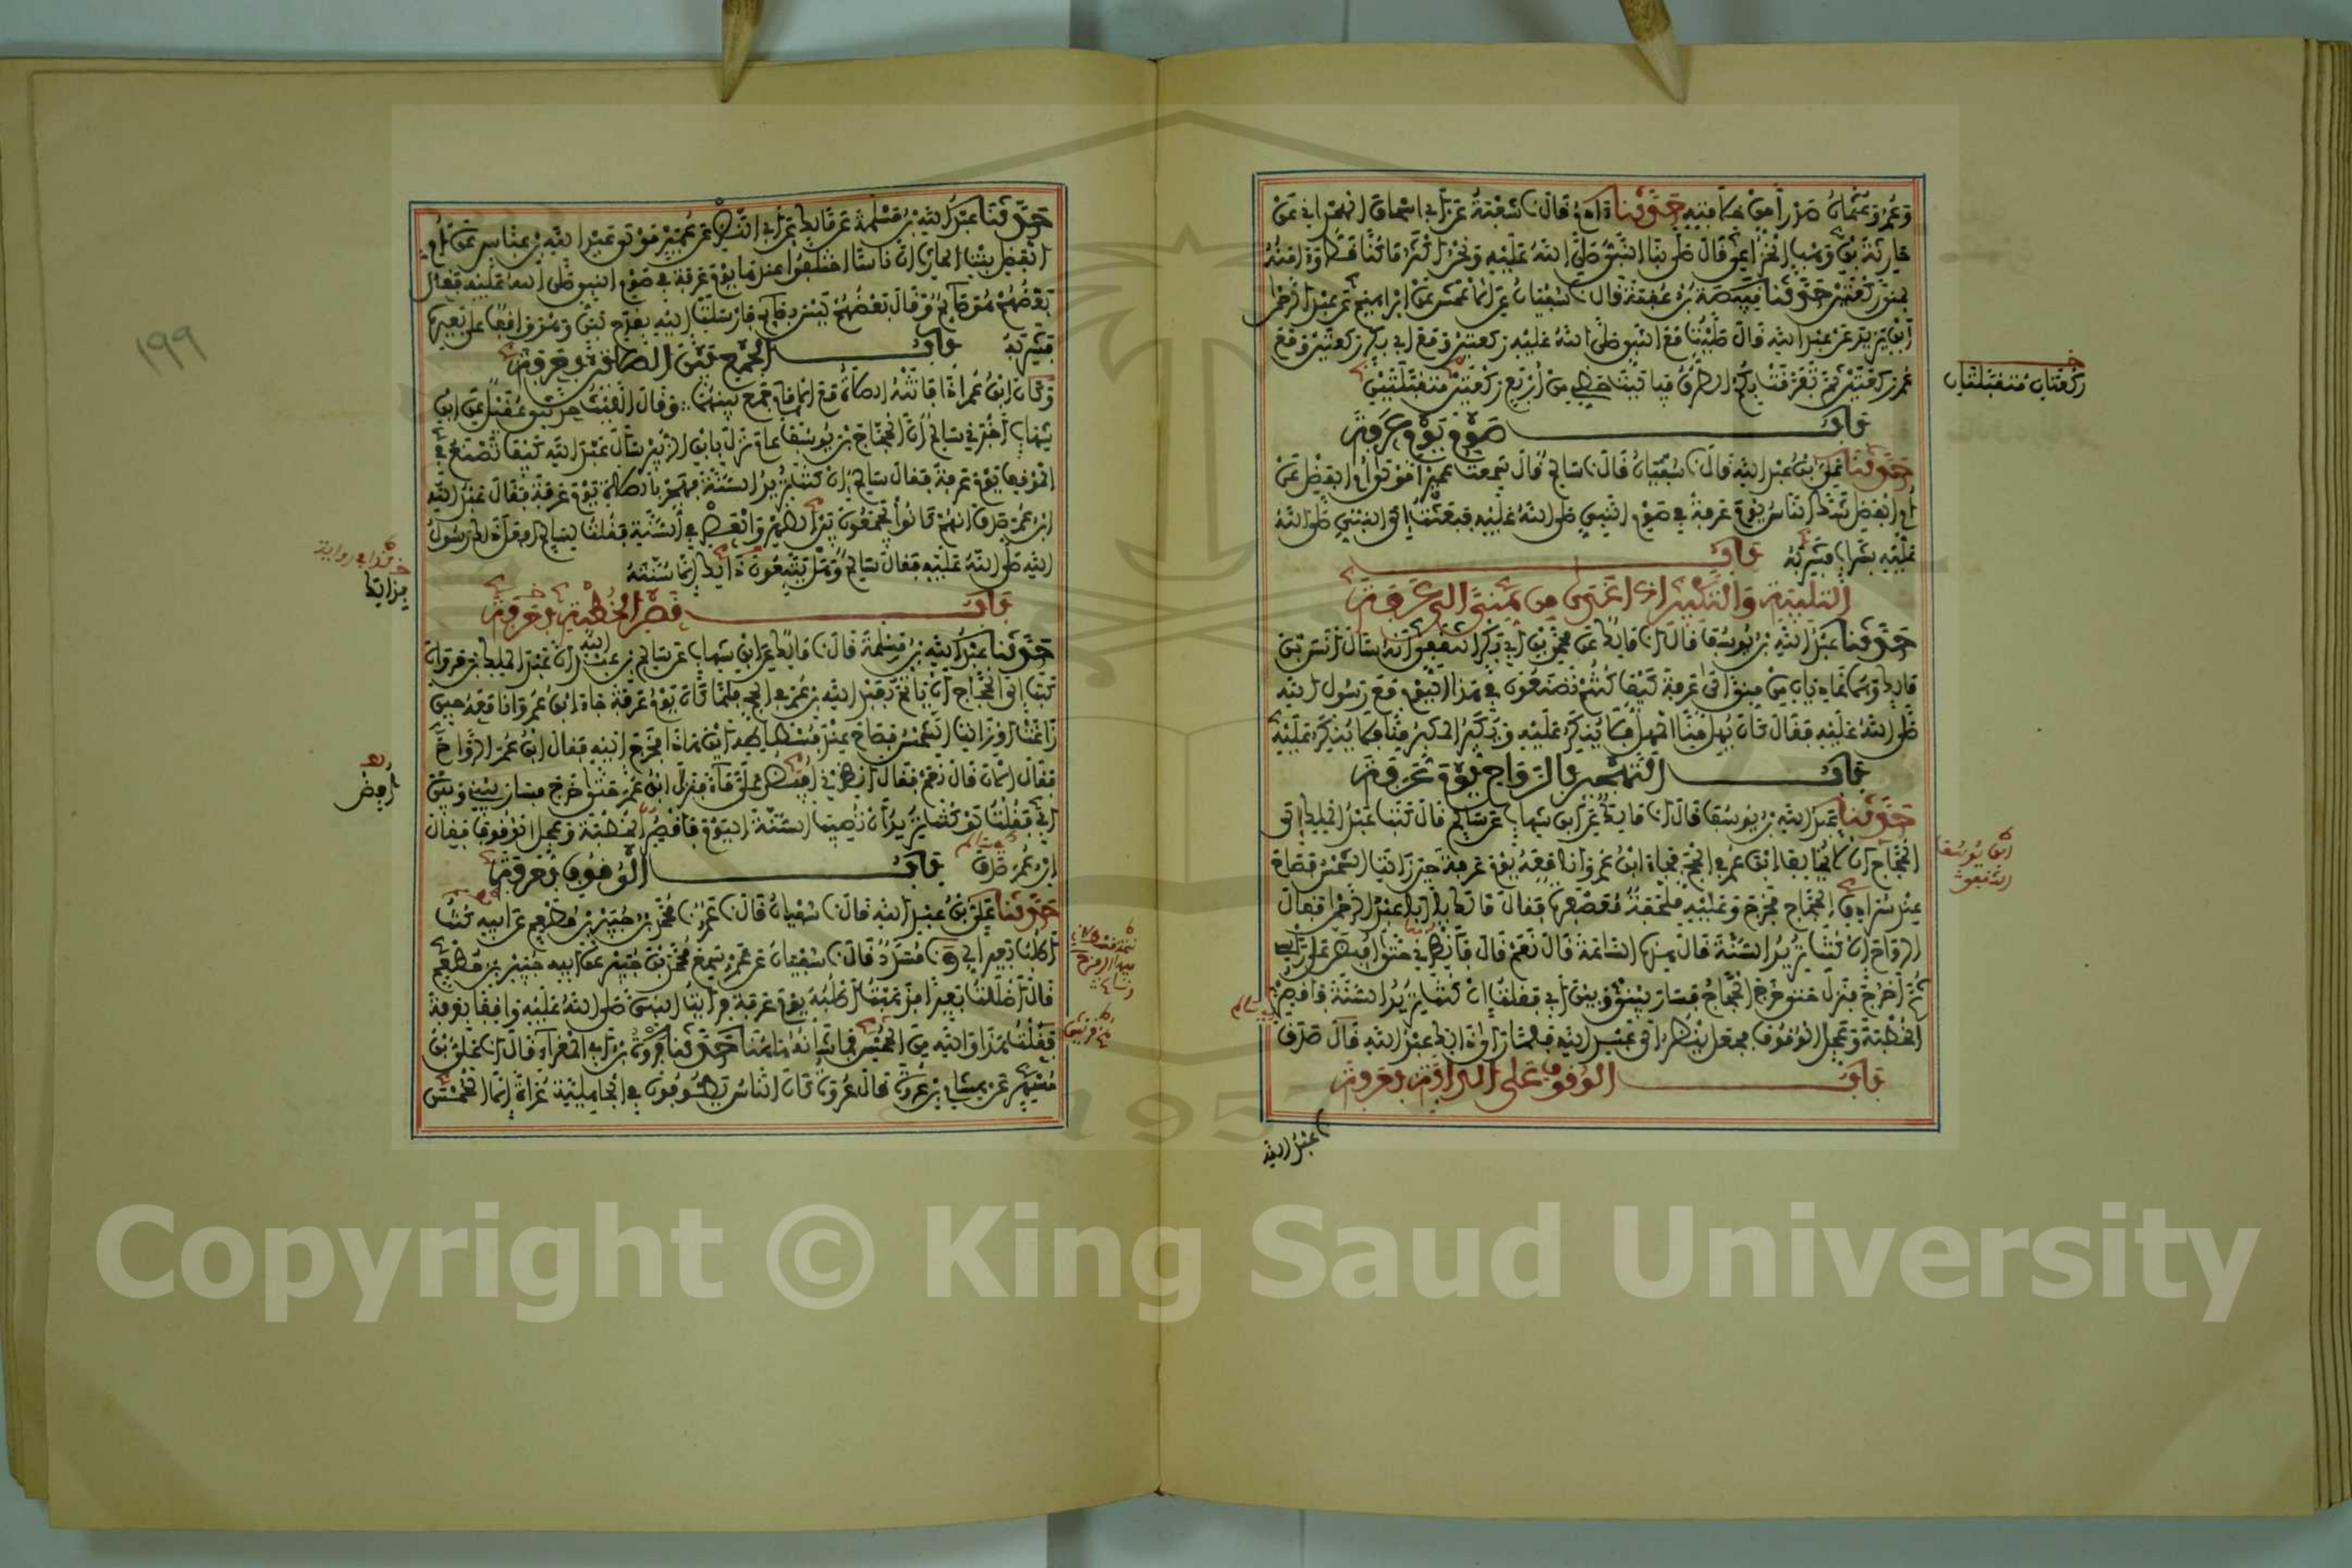 وعمر وعثمان صدرا من خلافته حدثنا ءادم قال نا شعبة عن أبي إسحاق الهمداني عن
حارثة بن وهب الخزاعي قال صلى بنا النبي صلى الله عليه ونحن أكثر ما كنا قط وءامنه
بمنى ركعتين حدثنا قبيصة بن عقبة قال نا سفيان عن الأعمش عن إبراهيم عن عبد الرحمن
ابن يزيد عن عبد الله قال صليت مع النبي صلى الله عليه ركعتين ومع أبي بكر ركعتين ومع
عمر ركعتين ثم تفرقت بكم الطرق فيا ليت حظي من أربع ركعتين متقبلتين
ركعتان متقبلتان
باب صوم يوم عرفة
حدثنا علي بن عبد الله قال نا سفيان قال نا سالم قال سمعت عميرا مولى أم الفضل عن
أم الفضل شك الناس يوم عرفة في صوم النبي صلى الله عليه فبعثت إلى النبي صلى الله
عليه بشراب فشربه باب
التلبية والتكبير إذا غدا من منى إلى عرفة
حدثنا عبد الله بن يوسف قال أنا مالك عن محمد بن أبي بكر الثقفي أنه سأل أنس بن
مالك وهما غاديان من منى إلى عرفة كيف كنتم تصنعون في هذا اليوم مع رسول الله
صلى الله عليه فقال كان يهل منا المهل فلا ينكر عليه ويكبر المكبر منا فلا ينكر عليه
باب التهجير بالرواح يوم عرفة
حدثنا عبد الله بن يوسف قال أنا مالك عن ابن شهاب عن سالم قال كتب عبد الملك إلى
الحجاج أن لا يخالف ابن عمر في الحج فجاء ابن عمر وأنا معه يوم عرفة حين زالت الشمس فصاح
عند سرادق الحجاج فخرج وعليه ملحفة معصفرة فقال مالك يا أبا عبد الرحمن فقال
الرواح إن كنت تريد السنة قال هذه الساعة قال نعم قال فأنظرني حتى أفيض على رأسي
ثم أخرج فنزل حتى خرج الحجاج فسار بيني وبين أبي فقلت إن كنت تريد السنة فاقصر
الخطبة وعجل الوقوف فجعل ينظر إلى عبد الله فلما رأى ذلك عبد الله قال صدق
باب الوقوف على الدابة بعرفة
عبد الله
١٩٩
حدثنا عبد الله بن مسلمة عن مالك عن أبي النضر عن عمير مولى عبد الله بن عباس عن أم
الفضل بنت الحارث أن ناسا اختلفوا عندها يوم عرفة في صوم النبي صلى الله عليه فقال
بعضهم هو صائم وقال بعضهم ليس بصائم فأرسلت إليه بقدح لبن وهو واقف على بعيره
فشربه باب الجمع بين الصلاتين بعرفة
وكان ابن عمر إذا فاتته الصلاة مع الإمام جمع بينهما وقال الليث حدثني عقيل عن ابن
شهاب أخبرني سالم أن الحجاج بن يوسف عام نزل بابن الزبير سأل عبد الله كيف تصنع في
الموقف يوم عرفة فقال سالم إن كنت تريد السنة فهجر بالصلاة يوم عرفة فقال عبد الله
ابن عمر صدق إنهم كانوا يجمعون بين الظهر والعصر في السنة فقلت لسالم أفعل ذلك رسول
الله صلى الله عليه فقال سالم وهل يتبعون ذلك إلا سنته
باب قصر الخطبة بعرفة
حدثنا عبد الله بن مسلمة قال نا مالك عن ابن شهاب عن سالم بن عبد الله أن عبد الملك بن مروان
كتب إلى الحجاج أن يأتم بعبد الله بن عمر في الحج فلما كان يوم عرفة جاء ابن عمر وأنا معه حين
زاغت أو زالت الشمس فصاح عند فسطاطه أين هذا فخرج إليه فقال ابن عمر الرواح
فقال الآن قال نعم فقال أنظرني أفيض علي ماء فنزل ابن عمر حتى خرج فسار بيني وبين
أبي فقلت لو كنت تريد أن تصيب السنة اليوم فاقصر الخطبة وعجل الوقوف فقال
ابن عمر صدق باب الوقوف بعرفة
حدثنا علي بن عبد الله قال نا سفيان قال نا عمرو نا محمد بن جبير بن مطعم عن أبيه كنت
أطلب بعيرا لي ونا مسدد قال نا سفيان عن عمرو سمع محمد بن جبير عن أبيه جبير بن مطعم
قال أضللت بعيرا فذهبت أطلبه يوم عرفة فرأيت النبي صلى الله عليه واقفا بعرفة
فقلت هذا والله من الحمس فما شأنه هاهنا حدثنا فروة بن أبي المغراء قال نا علي بن
مسهر عن هشام بن عروة قال عروة كان الناس يطوفون في الجاهلية عراة إلا الحمس
Copyright © King Saud University
1957